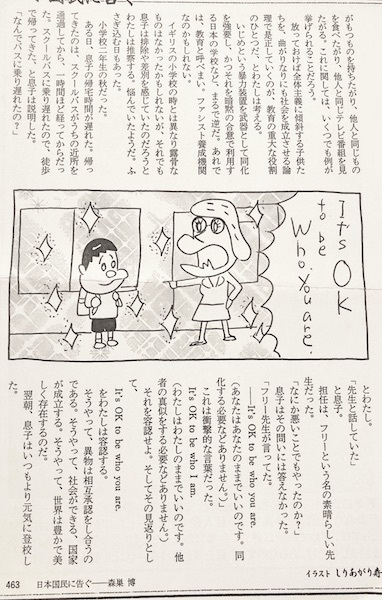 がいつものを持ちたがり、他人と同じもの
を食べたがり、他人と同じテレビ番組を見
たがる。これに関しては、いくつでも例が
挙げられることだろう。
放っておけば全体主義に傾斜する子供た
ちを、曲がりなりにも社会を成立させる論
理で是正していくのが、教育の重大な役割
のひとつだ、とわたしは考える。
いじめという暴力装置を武器として同化
を強要し、かつそれを暗黙の合意で利用す
る日本の学校など、まるで逆だ。あれで
は、教育と呼べまい。ファシスト養成機関
なのかもしれない。
イギリスの小学校の時とは異なり露骨な
ものはなかったかもしれないが、それでも
息子は排除や差別を感じていたのだろうと
わたしは推察する。悩んでいたようだ。ふ
さぎ込む日もあった。
小学校二年生の秋だった。
ある日、息子の帰宅時間が遅れた。帰っ
てきたのは、スクールバスがうちの近所を
通過してから、一時間ほど経ってからだっ
た。スクールバスに乗り遅れたので、徒歩
で帰ってきた、と息子は説明した。
「なんでバスに乗り遅れたの？」
It's OK
to be
Who you are
とわたし。
「先生と話していた」
と息子。
担任は、フリーという名の素晴らしい先
生だった。
「なにか悪いことでもやったのか？」
息子はその問いには答えなかった。
「フリー先生が言ってた。
――It's OK to be who you are.
（あなたはあなたのままでいいのです。同
化する必要などありません。）」
これは衝撃的な言葉だった。
It's OK to be who I am.
（わたしはわたしのままでいいのです。他
者の真似をする必要などありません。）
それを容認せよ。そしてその見返りとし
て、
It's OK to be who you are.
をわたしは容認する。
そうやって、異物は相互承認をし合うの
である。そうやって、社会ができる、国家
が成立する。そうやって、世界は豊かで美
しく存在するのだ。
翌朝、息子はいつもより元気に登校し
た。
イラスト しりあがり寿
463 日本国民に告ぐ――森巣 博